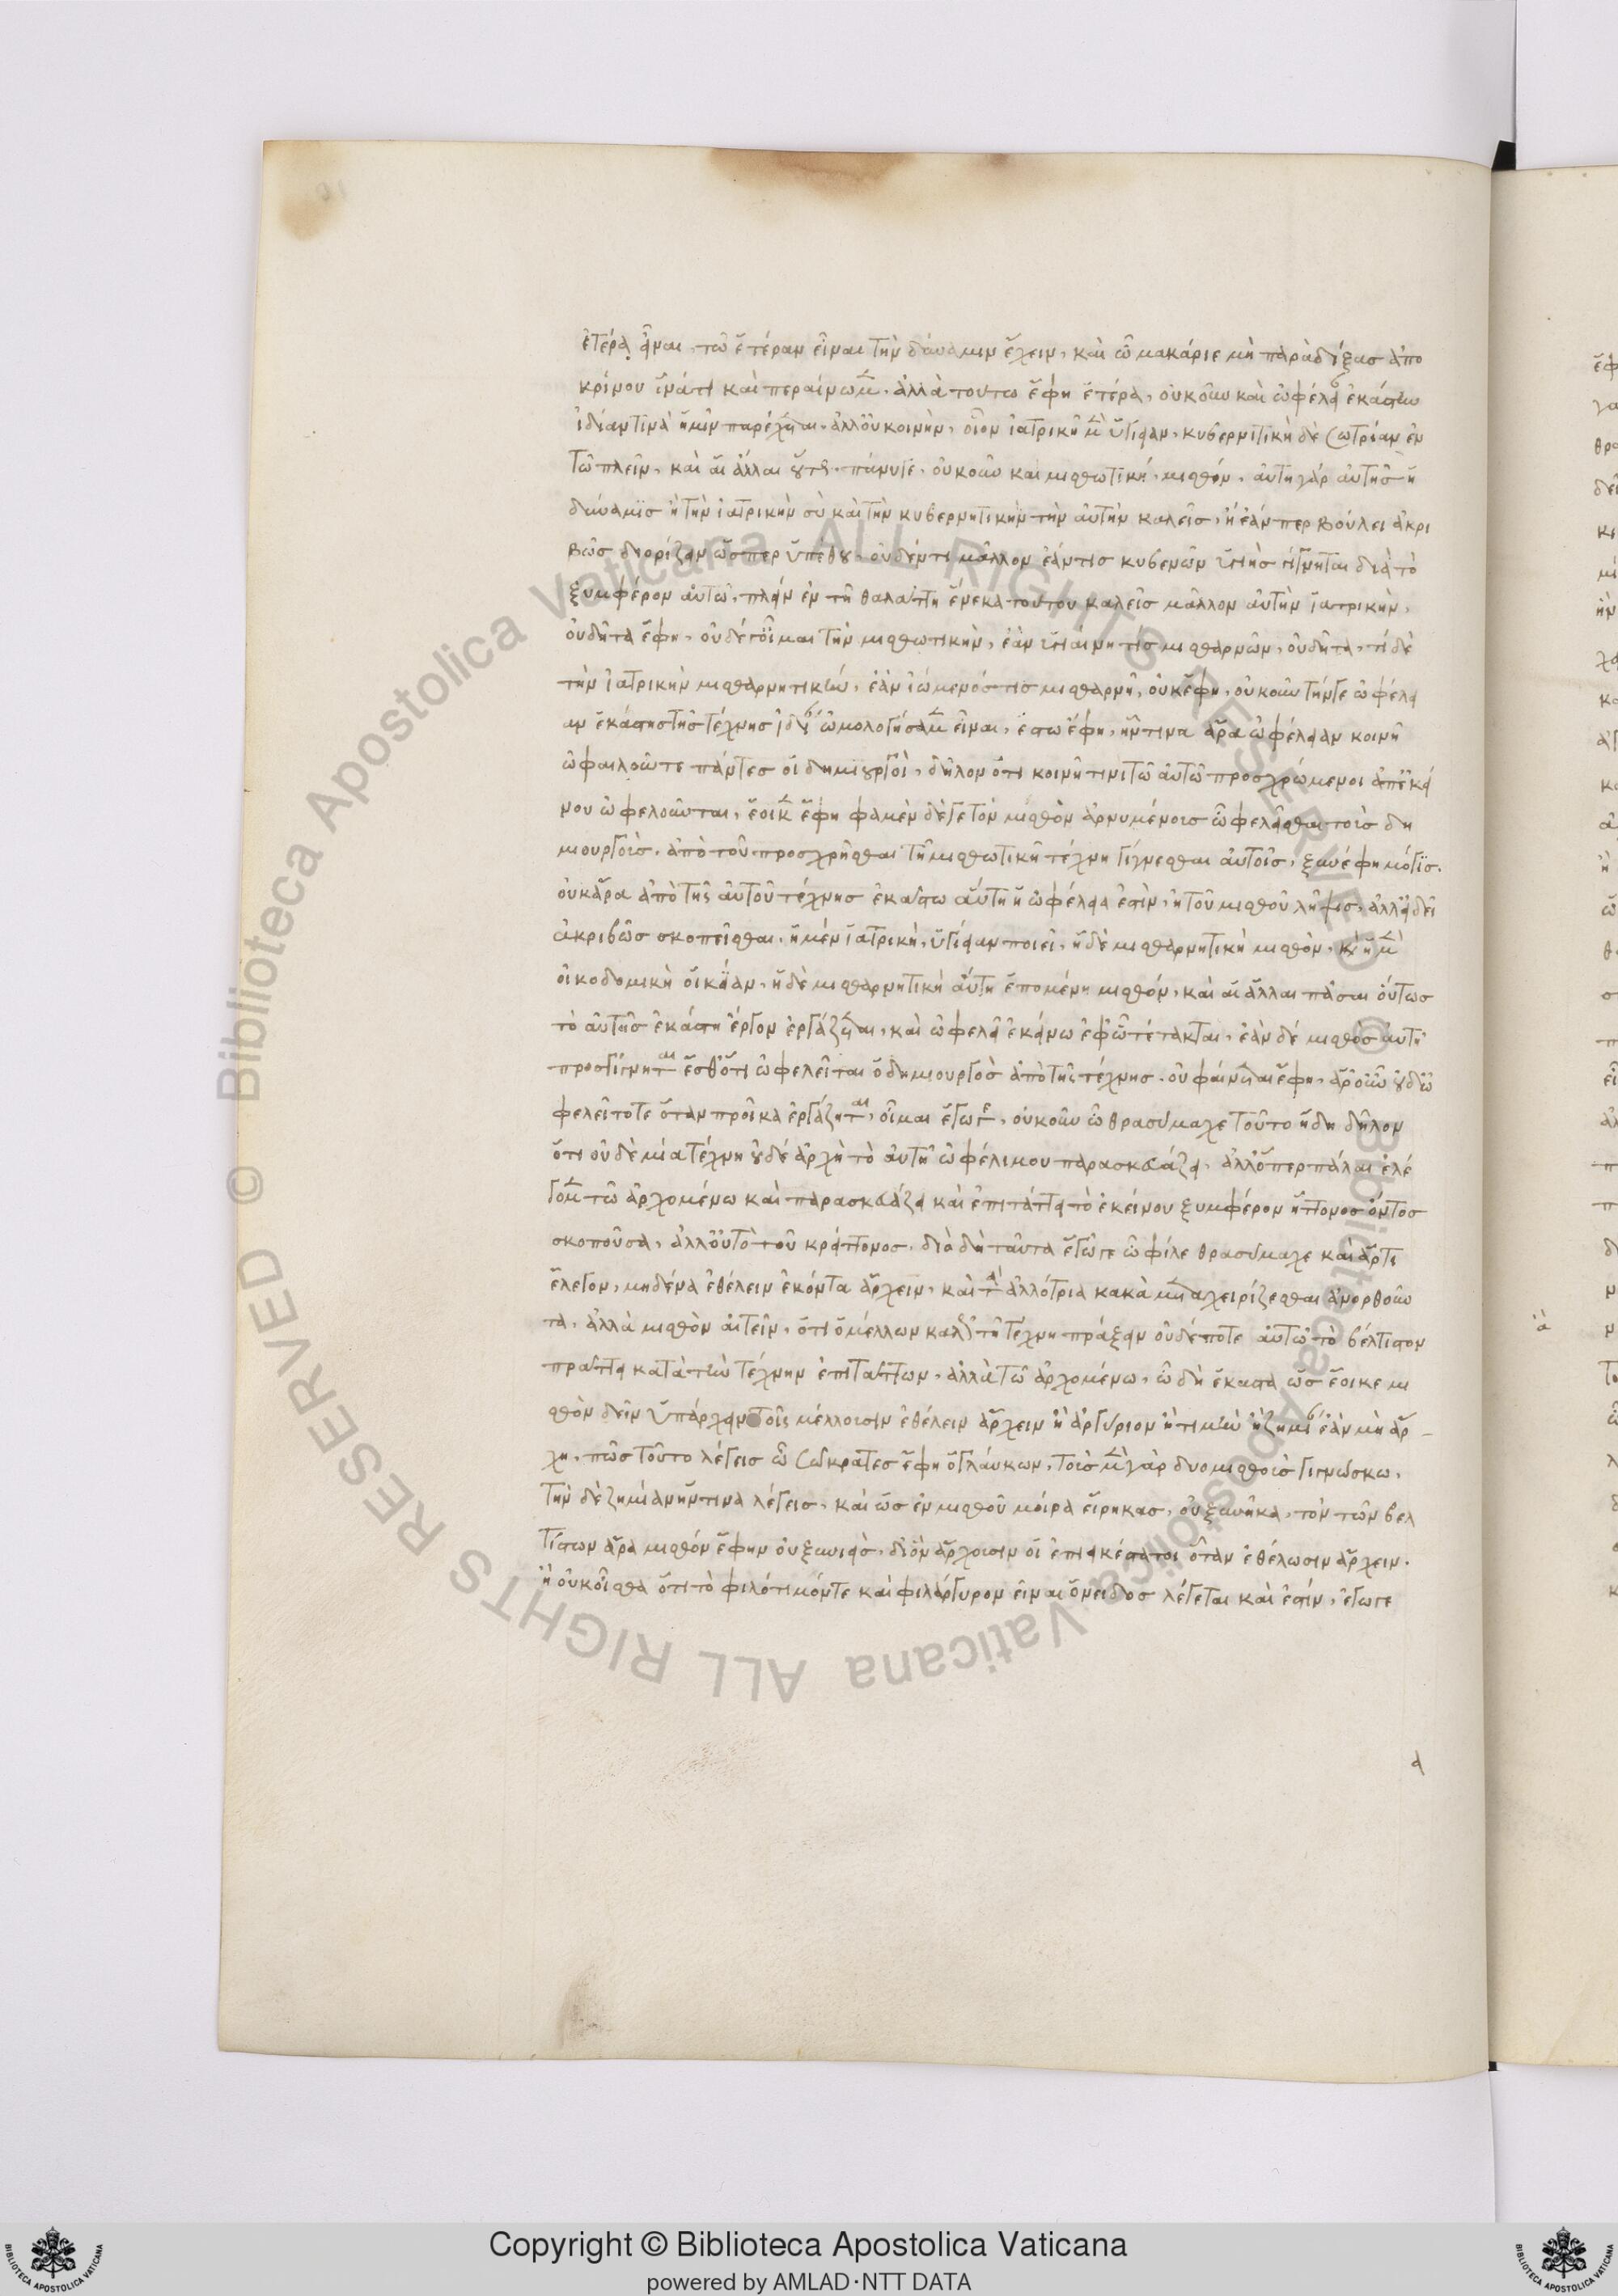 ἑτέρα εἶναι, τῶ ἑτέραν εἶναι τὴν δύναμιν ἔχειν, καὶ ὦ μακάριε μὴ παρὰ δόξας ἀπο
κρίνου ἵνά τι καὶ περαίνωμεν. ἀλλὰ τούτω ἔφη ἑτέρα, οὐκοῦν καὶ ὠφέλειαν ἑκάστη
ἰδίαν τινὰ ἡμῖν παρέχεται. ἀλλ' οὐ κοινὴν, οἷον ἰατρικὴ μὲν ὑγίειαν, κυβερνιτικὴ δὲ σωτρίαν ἐν
τῶ πλεῖν, καὶ αἱ ἄλλαι οὕτως. πάνυ γε. οὐκοῦν καὶ μισθωτικὴ. μισθόν. αὕτη γάρ αὐτῆς ἡ
δύναμις ἢ τὴν ἰατρικὴν σὺ καὶ τὴν κυβερνητικὴν τὴν αὐτὴν καλεῖς, ἢ ἐάν περ βούλει ἀκρι
βῶς διορίζειν ὥσπερ ὑπέθου. οὐδέν τι μᾶλλον ἐάν τις κυβερνῶν ὑγιὴς γίγνηται διὰ τὸ
ξυμφέρον αὐτῶ, πλεῖν ἐν τῇ θαλάττη ἕνεκα τούτου καλεῖς μᾶλλον αὐτὴν ἰατρικὴν,
οὐ δῆτα ἔφη. οὐδέ γ' οἶμαι τὴν μισθωτικὴν, ἐὰν ὑγιαίνη τίς μισθαρνῶν, οὐ δῆτα, τί δὲ
τὴν ἰατρικὴν μισθαρνητικὴν, ἐὰν ἰώμενός τις μισθαρνῇ, οὐκ ἔφη, οὐκοῦν τήν γε ὠφέλει
αν ἑκάστης τῆς τέχνης ἰδίαν ὡμολογήσαμεν εἶναι, ἔστω ἔφη, ἥντινα ἄρα ὠφέλειαν κοινῇ
ὠφελοῦνται πάντες οἱ δημιουργοὶ, δῆλον ὅτι κοινῇ τινι τῶ αὐτῶ προσχρώμενοι ἀπ' ἐκεί
νου ὠφελοῦνται, ἔοικεν ἔφη φαμὲν δέ γε τὸν μισθὸν ἀρνυμένοις ὠφελεῖσθαι τοὺς δη
μιουργοὺς. ἀπὸ τοῦ προσχρῆσθαι τῇ μισθωτικῇ τέχνη γίγνεσθαι αὐτοῖς, ξυνέφη μόγις.
οὐκ ἄρα ἀπὸ τῆς αὐτοῦ τέχνης ἑκάστω αὕτη ἡ ὠφέλεια ἐστὶν, ἡ τοῦ μισθοῦ λῆψις, ἀλλ' εἰ δεῖ
ἀκριβῶς σκοπεῖσθαι. ἡ μὲν ἰατρικὴ, ὑγίειαν ποιεῖ, ἡ δὲ μισθαρνητικὴ μισθὸν, καὶ ἡ μὲν
οἰκοδομικὴ οἰκίαν, ἡ δὲ μισθαρνητικὴ αὐτῇ ἑπομένη μισθόν, καὶ αἱ ἄλλαι πᾶσαι οὕτως
τὸ αὑτῆς ἑκάστη ἔργον ἐργάζεται, καὶ ὠφελεῖ ἐκεῖνο ἐφ' ᾧ τέτακται, ἐὰν δέ μισθὸς αὐτῇ
προσγίγνηται ἔσθ' ὅτι ὠφελεῖται ὁ δημιουργὸς ἀπὸ τῆς τέχνης. οὐ φαίνεται ἔφη, ἆρ' οὖν οὐδ' ὠ
φελεῖ τότε ὅταν προῖκα ἐργάζηται, οἶμαι ἔγωγε, οὐκοῦν ὦ θρασύμαχε τοῦτο ἤδη δῆλον
ὅτι οὐδὲ μία τέχνη οὐδὲ ἀρχὴ τὸ αὑτῇ ὠφέλιμον παρασκευάζει. ἀλλ' ὅπερ πάλαι ἐλέ
γομεν τῶ ἀρχομένω καὶ παρασκευάζει καὶ ἐπιτάττει τὸ ἐκείνου ξυμφέρον ἥττονος ὄντος
σκοποῦσα, ἀλλ' οὐ τὸ τοῦ κρείττονος. διὰ δὴ ταῦτα ἔγωγε ὦ φίλε θρασύμαχε καὶ ἄρτι
ἔλεγον, μηδένα ἐθέλειν ἑκόντα ἄρχειν, καὶ τὰ ἀλλότρια κακὰ μεταχειρίζεσθαι ἀνορθοῦν
τα, ἀλλὰ μισθὸν αἰτεῖν, ὅτι ὁ μέλλων καλῶς τῇ τέχνη πράξειν οὐδέποτε αὑτῶ τὸ βέλτιστον
πράττει κατὰ τὴν τέχνην ἐπιτάττων, ἀλλὰ τῶ ἀρχομένω, ὧ δὴ ἕκαστα ὡς ἔοικε μι
σθὸν δεῖν ὑπάρχειν τοῖς μέλλουσιν ἐθέλειν ἄρχειν ἢ ἀργύριον ἢ τιμὴν ἢ ζημίαν ἐὰν μὴ ἄρ
χη, πῶς τοῦτο λέγεις ὦ σώκρατες ἔφη ὁ γλαύκων, τοὺς μὲν γὰρ δύο μισθοὺς γιγνώσκω,
τὴν δὲ ζημίαν ἥντινα λέγεις, καὶ ὡς ἐν μισθοῦ μοίρα εἴρηκας, οὐ ξυνῆκα, τὸν τῶν βελ
τίστων ἄρα μισθόν ἔφην οὐ ξυνιεὶς. δι' ὃν ἄρχουσιν οἱ ἐπιεικέστατοι ὅταν ἐθέλωσιν ἄρχειν.
ἢ οὐκ οἶσθα ὅτι τὸ φιλότιμόν τε καὶ φιλάργυρον εἶναι ὄνειδος λέγεται καὶ ἐστίν, ἔγωγε
Copyright © Biblioteca Apostolica Vaticana
powered by AMLAD·NTT DATA